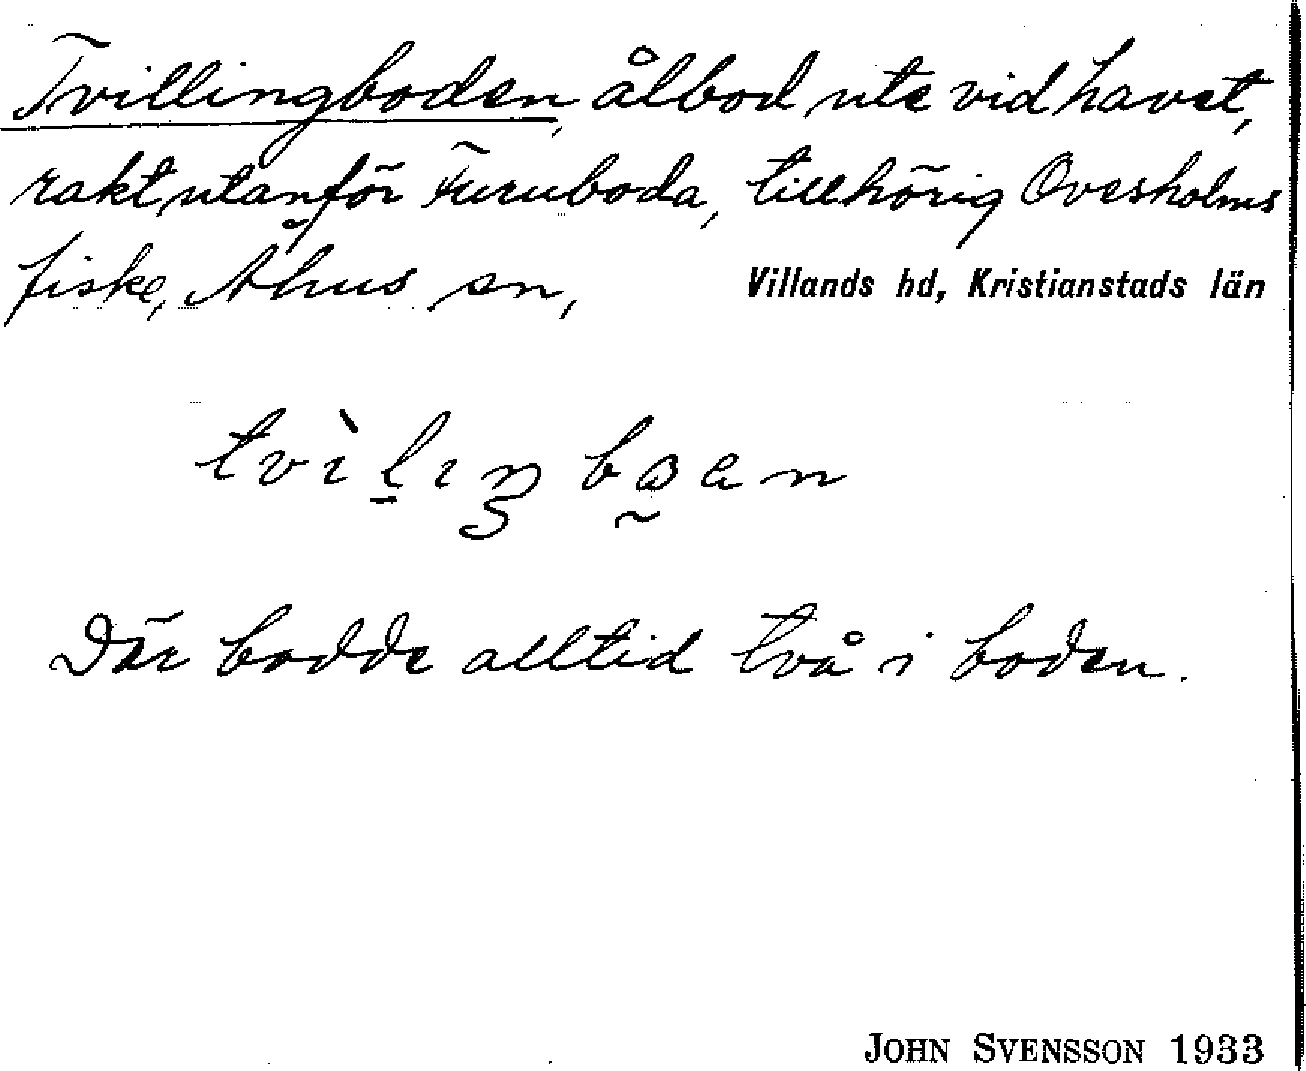 Tvillingboden, ålbod ute vid havet,
rakt utanför Furuboda, tillhörig Ovesholms
fiske, Åhus sn, Villands hd, Kristianstads län
Där bodde alltid två i boden.
JOHN SVENSSON 1933